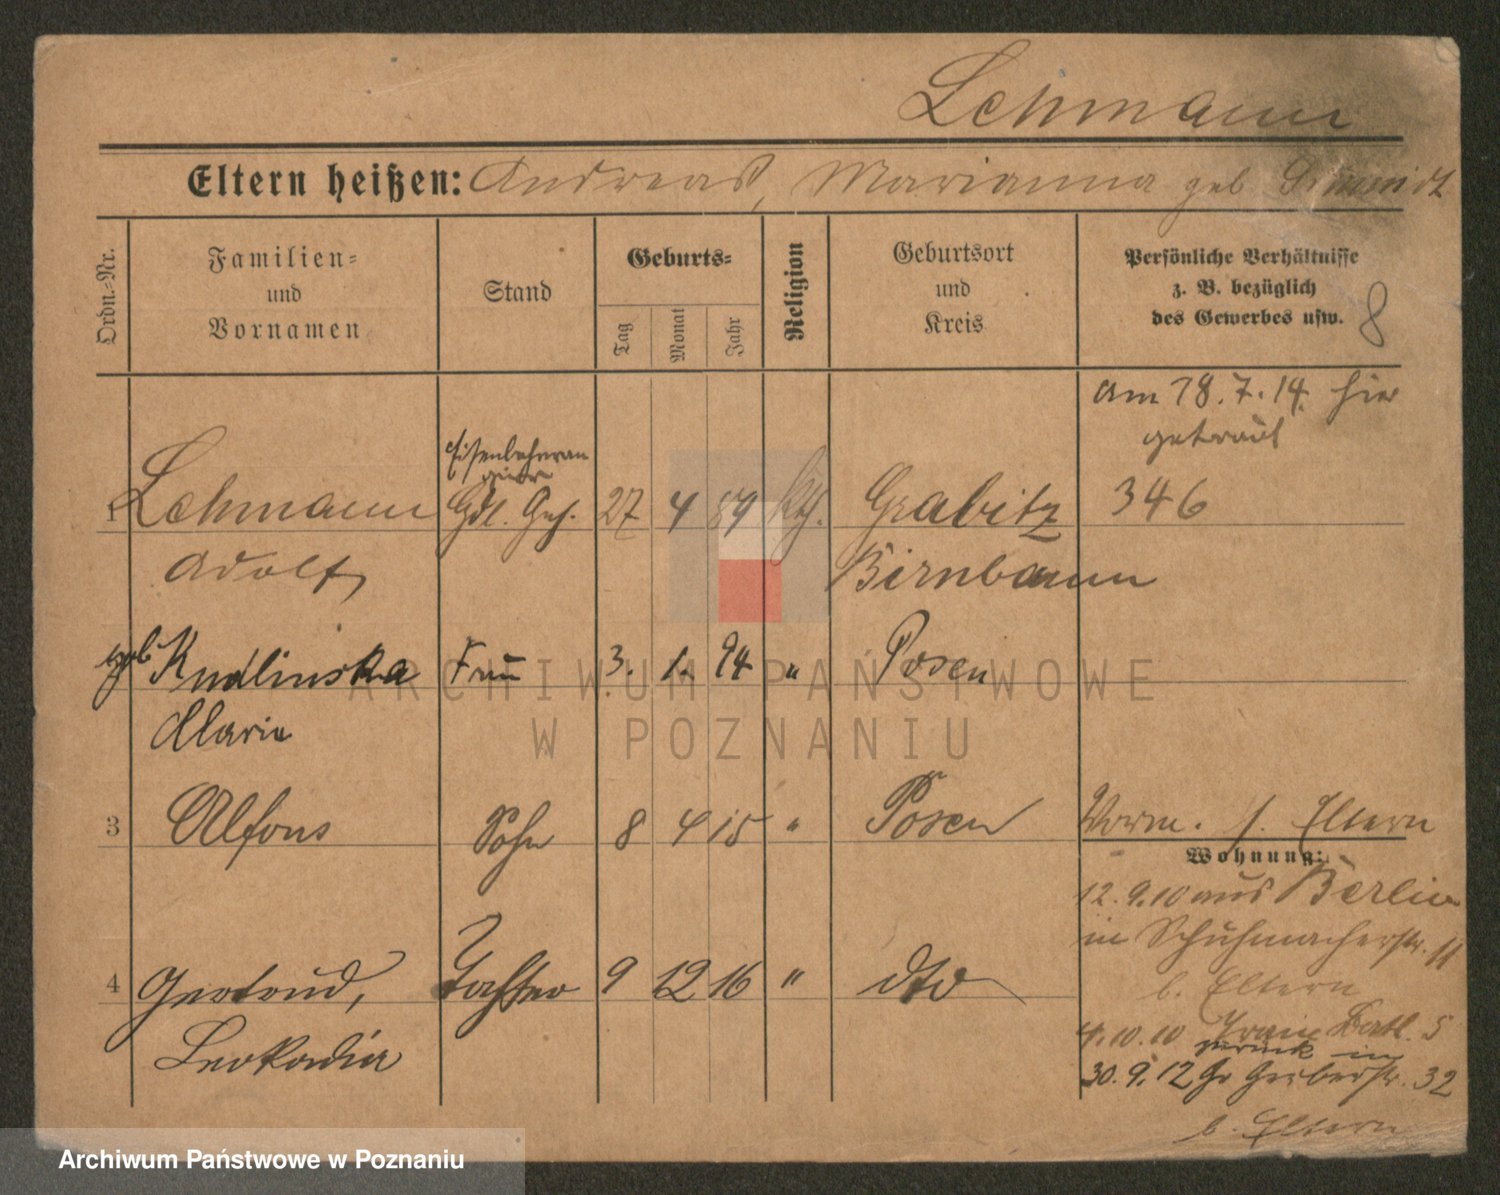 Lehmann
Eltern heißen: Andreas, Marianna geb Schmidt
Ordn.-Nr.
Familien- und Vornamen
Stand
Geburts-
Tag
Monat
Jahr
Religion
Geburtsort und Kreis
Persönliche Verhältnisse
z. B. bezüglich
des Gewerbes usw.
8
am 18.7.14. hier
getraut
346
1 Lehmann Gdl. Geh. 27 4 89 kth. Grabitz
Adolf Birnbaum
geb Kudlinska Frau 3. 1. 94 " Posen
Maria
3 Alfons Sohn 8 4 15 " Posen Vorm. s. Eltern
Wohnung:
12.9.10 aus Berlin
in Schuhmacherstr. 11
b. Eltern
4 Gertrud, Tochter 9 12 16 " dto
Leokadia
4.10.10 Train Batl. 5
zurück in
30.9.12 Gr Gerberstr. 32
b. Eltern
ARCHIWUM PAŃSTWOWE
W POZNANIU
Archiwum Państwowe w Poznaniu